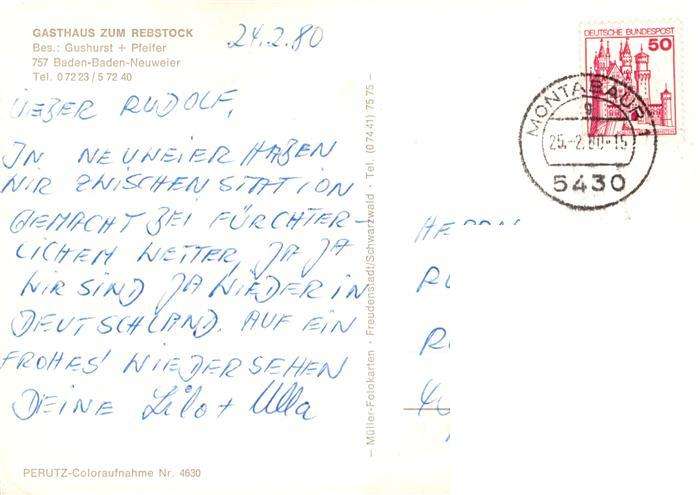 GASTHAUS ZUM REBSTOCK
Bes.: Gushurst + Pfeifer
757 Baden-Baden-Neuweier
Tel. 0 72 23 / 5 72 40
24.2.80
LIEBER RUDOLF,
IN NEUWEIER HABEN
WIR ZWISCHENSTATION
GEMACHT BEI FÜRCHTER-
LICHEM WETTER, JA JA
WIR SIND JA WIEDER IN
DEUTSCHLAND. AUF EIN
FROHES WIEDERSEHEN
DEINE Lilo + Ulla
PERUTZ-Coloraufnahme Nr. 4630
— Müller-Fotokarten · Freudenstadt/Schwarzwald · Tel. (0 74 41) 75 75 —
DEUTSCHE BUNDESPOST
50
MONTABAUR 1
g
25.-2.80-15
5430
HERRN